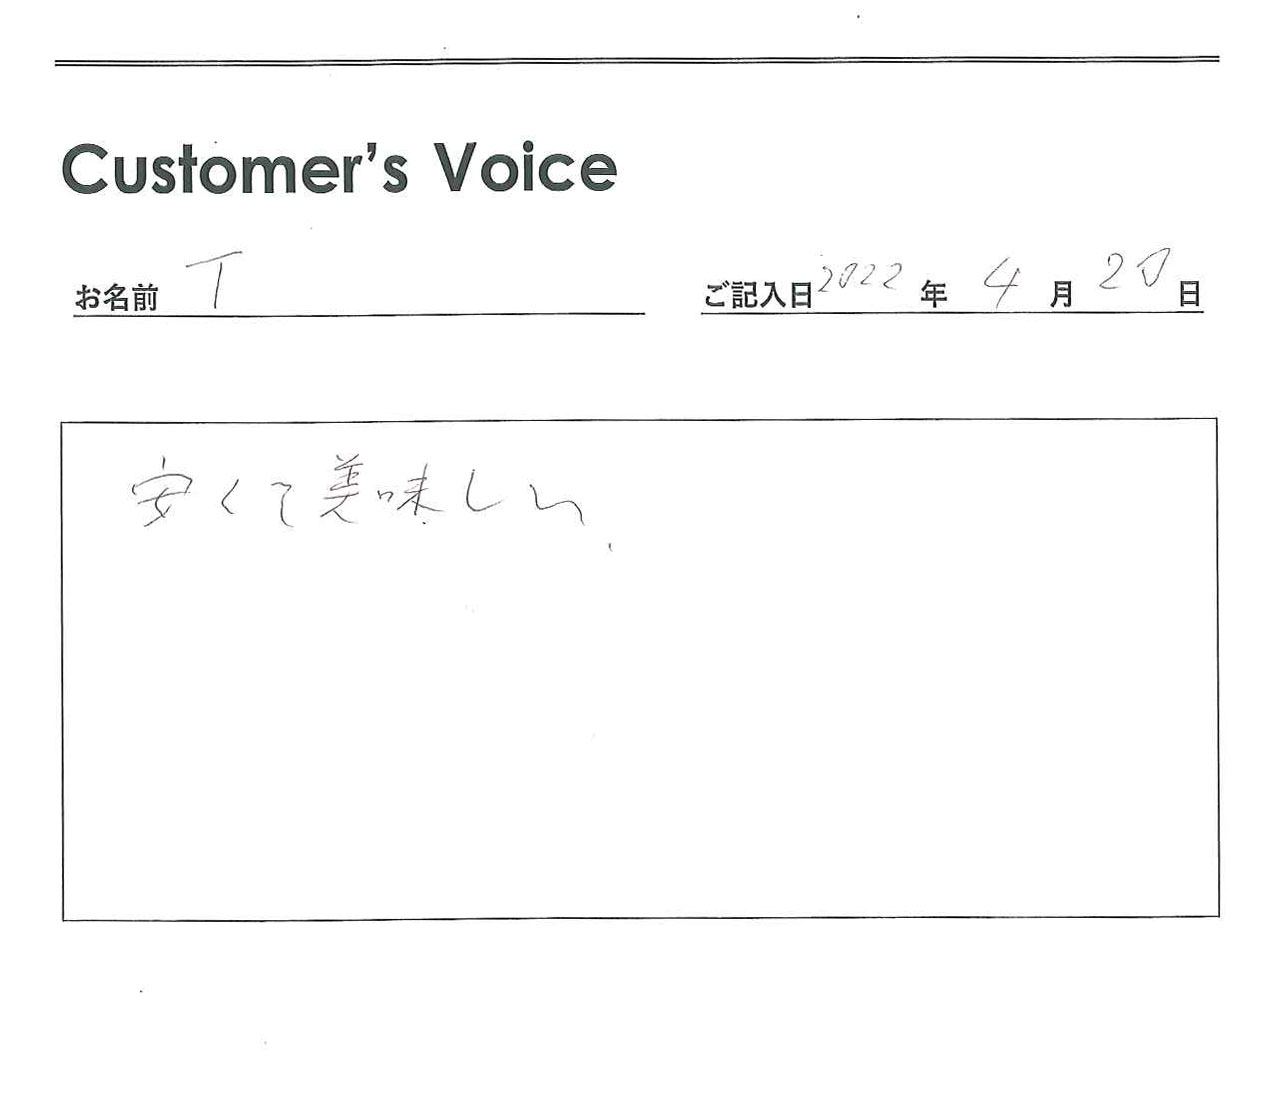 Customer's Voice
お名前 T ご記入日 2022 年 4 月 20 日
安くて美味しい